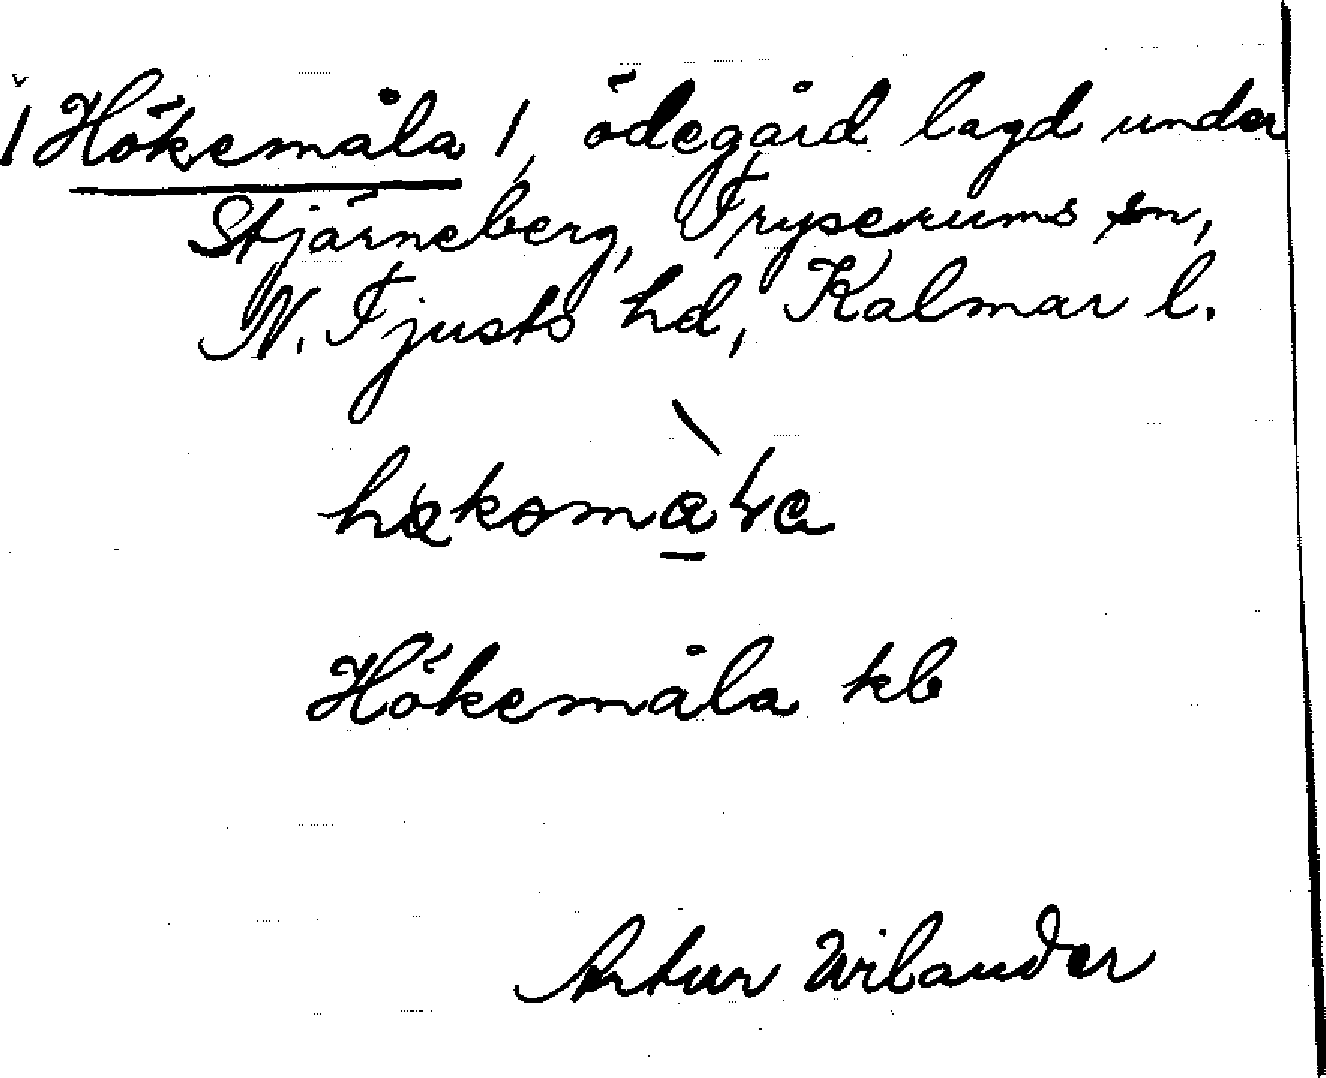 /Hökemåla/, ödegård lagd under
Stjärneberg, Tryserums sn,
N. Tjusts hd, Kalmar l.
Hökemåla kb
Artur Wilander